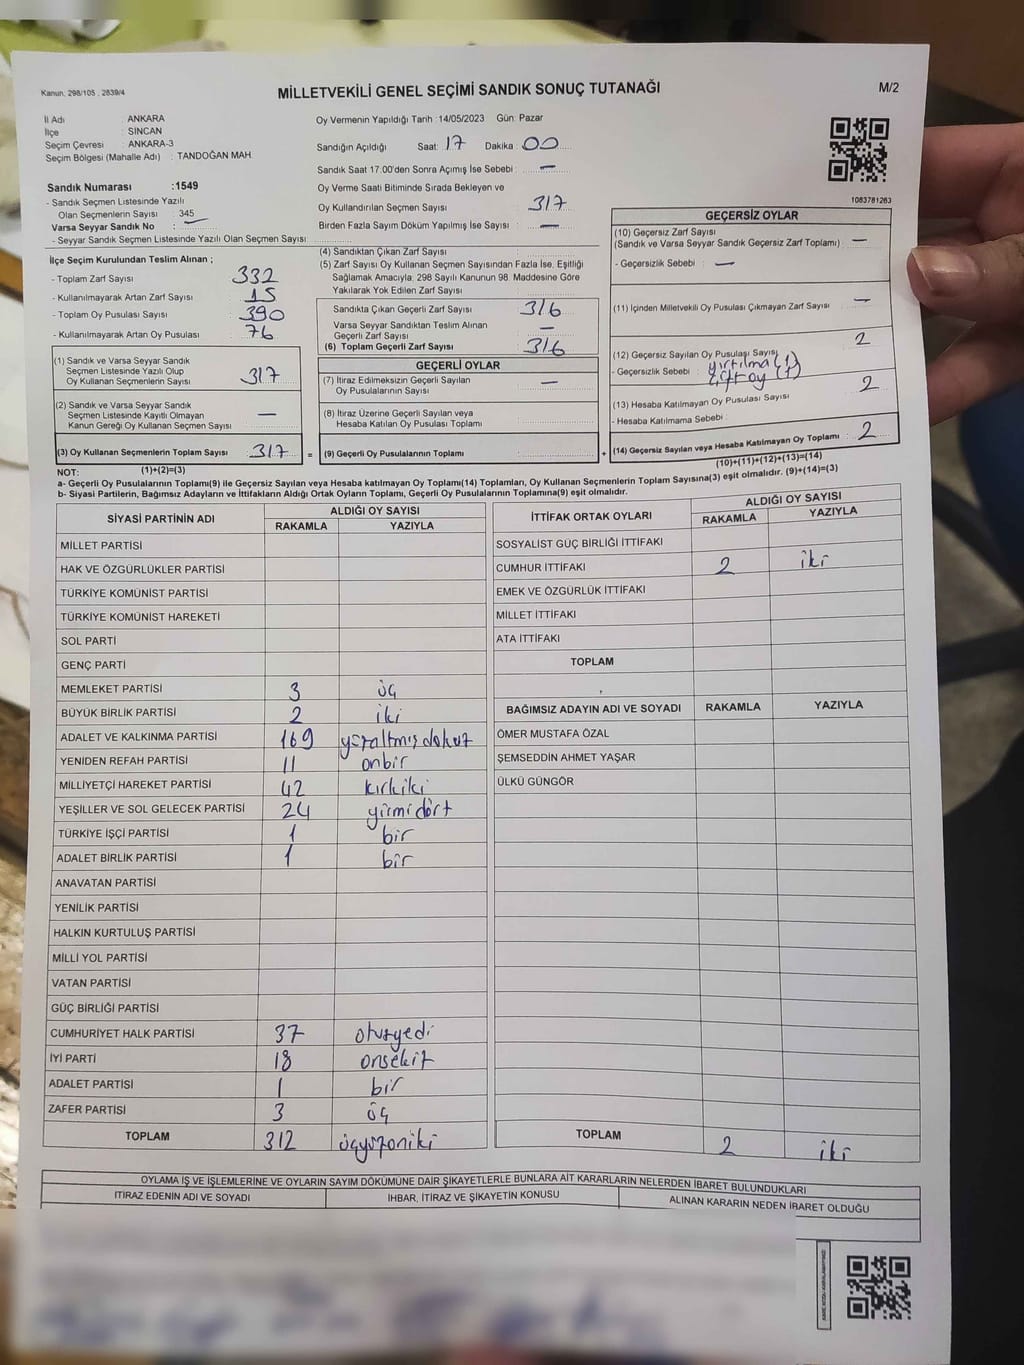 Kanun, 298/105 , 2839/4
MİLLETVEKİLİ GENEL SEÇİMİ SANDIK SONUÇ TUTANAĞI
M/2
İl Adı : ANKARA
İlçe : SİNCAN
Seçim Çevresi : ANKARA-3
Seçim Bölgesi (Mahalle Adı) : TANDOĞAN MAH.
Sandık Numarası :1549
- Sandık Seçmen Listesinde Yazılı
Olan Seçmenlerin Sayısı : 345
Varsa Seyyar Sandık No : —
- Seyyar Sandık Seçmen Listesinde Yazılı Olan Seçmen Sayısı
Oy Vermenin Yapıldığı Tarih :14/05/2023 Gün: Pazar
Sandığın Açıldığı Saat: 17 Dakika : 00
Sandık Saat 17.00'den Sonra Açımış İse Sebebi : —
Oy Verme Saati Bitiminde Sırada Bekleyen ve
Oy Kullandırılan Seçmen Sayısı : 317
Birden Fazla Sayım Döküm Yapılmış İse Sayısı : —
1083781263
İlçe Seçim Kurulundan Teslim Alınan ;
- Toplam Zarf Sayısı : 332
- Kullanılmayarak Artan Zarf Sayısı : 15
- Toplam Oy Pusulası Sayısı : 390
- Kullanılmayarak Artan Oy Pusulası : 76
(1) Sandık ve Varsa Seyyar Sandık
Seçmen Listesinde Yazılı Olup
Oy Kullanan Seçmenlerin Sayısı : 317
(2) Sandık ve Varsa Seyyar Sandık
Seçmen Listesinde Kayıtlı Olmayan
Kanun Gereği Oy Kullanan Seçmen Sayısı : —
(3) Oy Kullanan Seçmenlerin Toplam Sayısı : 317
(4) Sandıktan Çıkan Zarf Sayısı :
(5) Zarf Sayısı Oy Kullanan Seçmen Sayısından Fazla İse, Eşitliği
Sağlamak Amacıyla, 298 Sayılı Kanunun 98. Maddesine Göre
Yakılarak Yok Edilen Zarf Sayısı :
Sandıkta Çıkan Geçerli Zarf Sayısı : 316
Varsa Seyyar Sandıktan Teslim Alınan
Geçerli Zarf Sayısı : —
(6) Toplam Geçerli Zarf Sayısı : 316
GEÇERLİ OYLAR
(7) İtiraz Edilmeksizin Geçerli Sayılan
Oy Pusulalarının Sayısı : —
(8) İtiraz Üzerine Geçerli Sayılan veya
Hesaba Katılan Oy Pusulası Toplamı :
= (9) Geçerli Oy Pusulalarının Toplamı :
GEÇERSİZ OYLAR
(10) Geçersiz Zarf Sayısı
(Sandık ve Varsa Seyyar Sandık Geçersiz Zarf Toplamı) : —
- Geçersizlik Sebebi : —
(11) İçinden Milletvekili Oy Pusulası Çıkmayan Zarf Sayısı : —
(12) Geçersiz Sayılan Oy Pusulası Sayısı : 2
- Geçersizlik Sebebi : yırtılma (1)
çift oy (1)
(13) Hesaba Katılmayan Oy Pusulası Sayısı : 2
- Hesaba Katılmama Sebebi :
+ (14) Geçersiz Sayılan veya Hesaba Katılmayan Oy Toplamı : 2
NOT: (1)+(2)=(3)
(10)+(11)+(12)+(13)=(14)
a- Geçerli Oy Pusulalarının Toplamı(9) ile Geçersiz Sayılan veya Hesaba katılmayan Oy Toplamı(14) Toplamları, Oy Kullanan Seçmenlerin Toplam Sayısına(3) eşit olmalıdır. (9)+(14)=(3)
b- Siyasi Partilerin, Bağımsız Adayların ve İttifakların Aldığı Ortak Oyların Toplamı, Geçerli Oy Pusulalarının Toplamına(9) eşit olmalıdır.
SİYASİ PARTİNİN ADI ALDIĞI OY SAYISI
RAKAMLA YAZIYLA
MİLLET PARTİSİ
HAK VE ÖZGÜRLÜKLER PARTİSİ
TÜRKİYE KOMÜNİST PARTİSİ
TÜRKİYE KOMÜNİST HAREKETİ
SOL PARTİ
GENÇ PARTİ
MEMLEKET PARTİSİ 3 üç
BÜYÜK BİRLİK PARTİSİ 2 iki
ADALET VE KALKINMA PARTİSİ 169 yüzaltmışdokuz
YENİDEN REFAH PARTİSİ 11 onbir
MİLLİYETÇİ HAREKET PARTİSİ 42 kırkiki
YEŞİLLER VE SOL GELECEK PARTİSİ 24 yirmidört
TÜRKİYE İŞÇİ PARTİSİ 1 bir
ADALET BİRLİK PARTİSİ 1 bir
ANAVATAN PARTİSİ
YENİLİK PARTİSİ
HALKIN KURTULUŞ PARTİSİ
MİLLİ YOL PARTİSİ
VATAN PARTİSİ
GÜÇ BİRLİĞİ PARTİSİ
CUMHURİYET HALK PARTİSİ 37 otuzyedi
İYİ PARTİ 18 onsekiz
ADALET PARTİSİ 1 bir
ZAFER PARTİSİ 3 üç
TOPLAM 312 üçyüzoniki
İTTİFAK ORTAK OYLARI ALDIĞI OY SAYISI
RAKAMLA YAZIYLA
SOSYALİST GÜÇ BİRLİĞİ İTTİFAKI
CUMHUR İTTİFAKI 2 iki
EMEK VE ÖZGÜRLÜK İTTİFAKI
MİLLET İTTİFAKI
ATA İTTİFAKI
TOPLAM
BAĞIMSIZ ADAYIN ADI VE SOYADI RAKAMLA YAZIYLA
ÖMER MUSTAFA ÖZAL
ŞEMSEDDİN AHMET YAŞAR
ÜLKÜ GÜNGÖR
TOPLAM 2 iki
OYLAMA İŞ VE İŞLEMLERİNE VE OYLARIN SAYIM DÖKÜMÜNE DAİR ŞİKAYETLERLE BUNLARA AİT KARARLARIN NELERDEN İBARET BULUNDUKLARI
İTİRAZ EDENİN ADI VE SOYADI İHBAR, İTİRAZ VE ŞİKAYETİN KONUSU ALINAN KARARIN NEDEN İBARET OLDUĞU